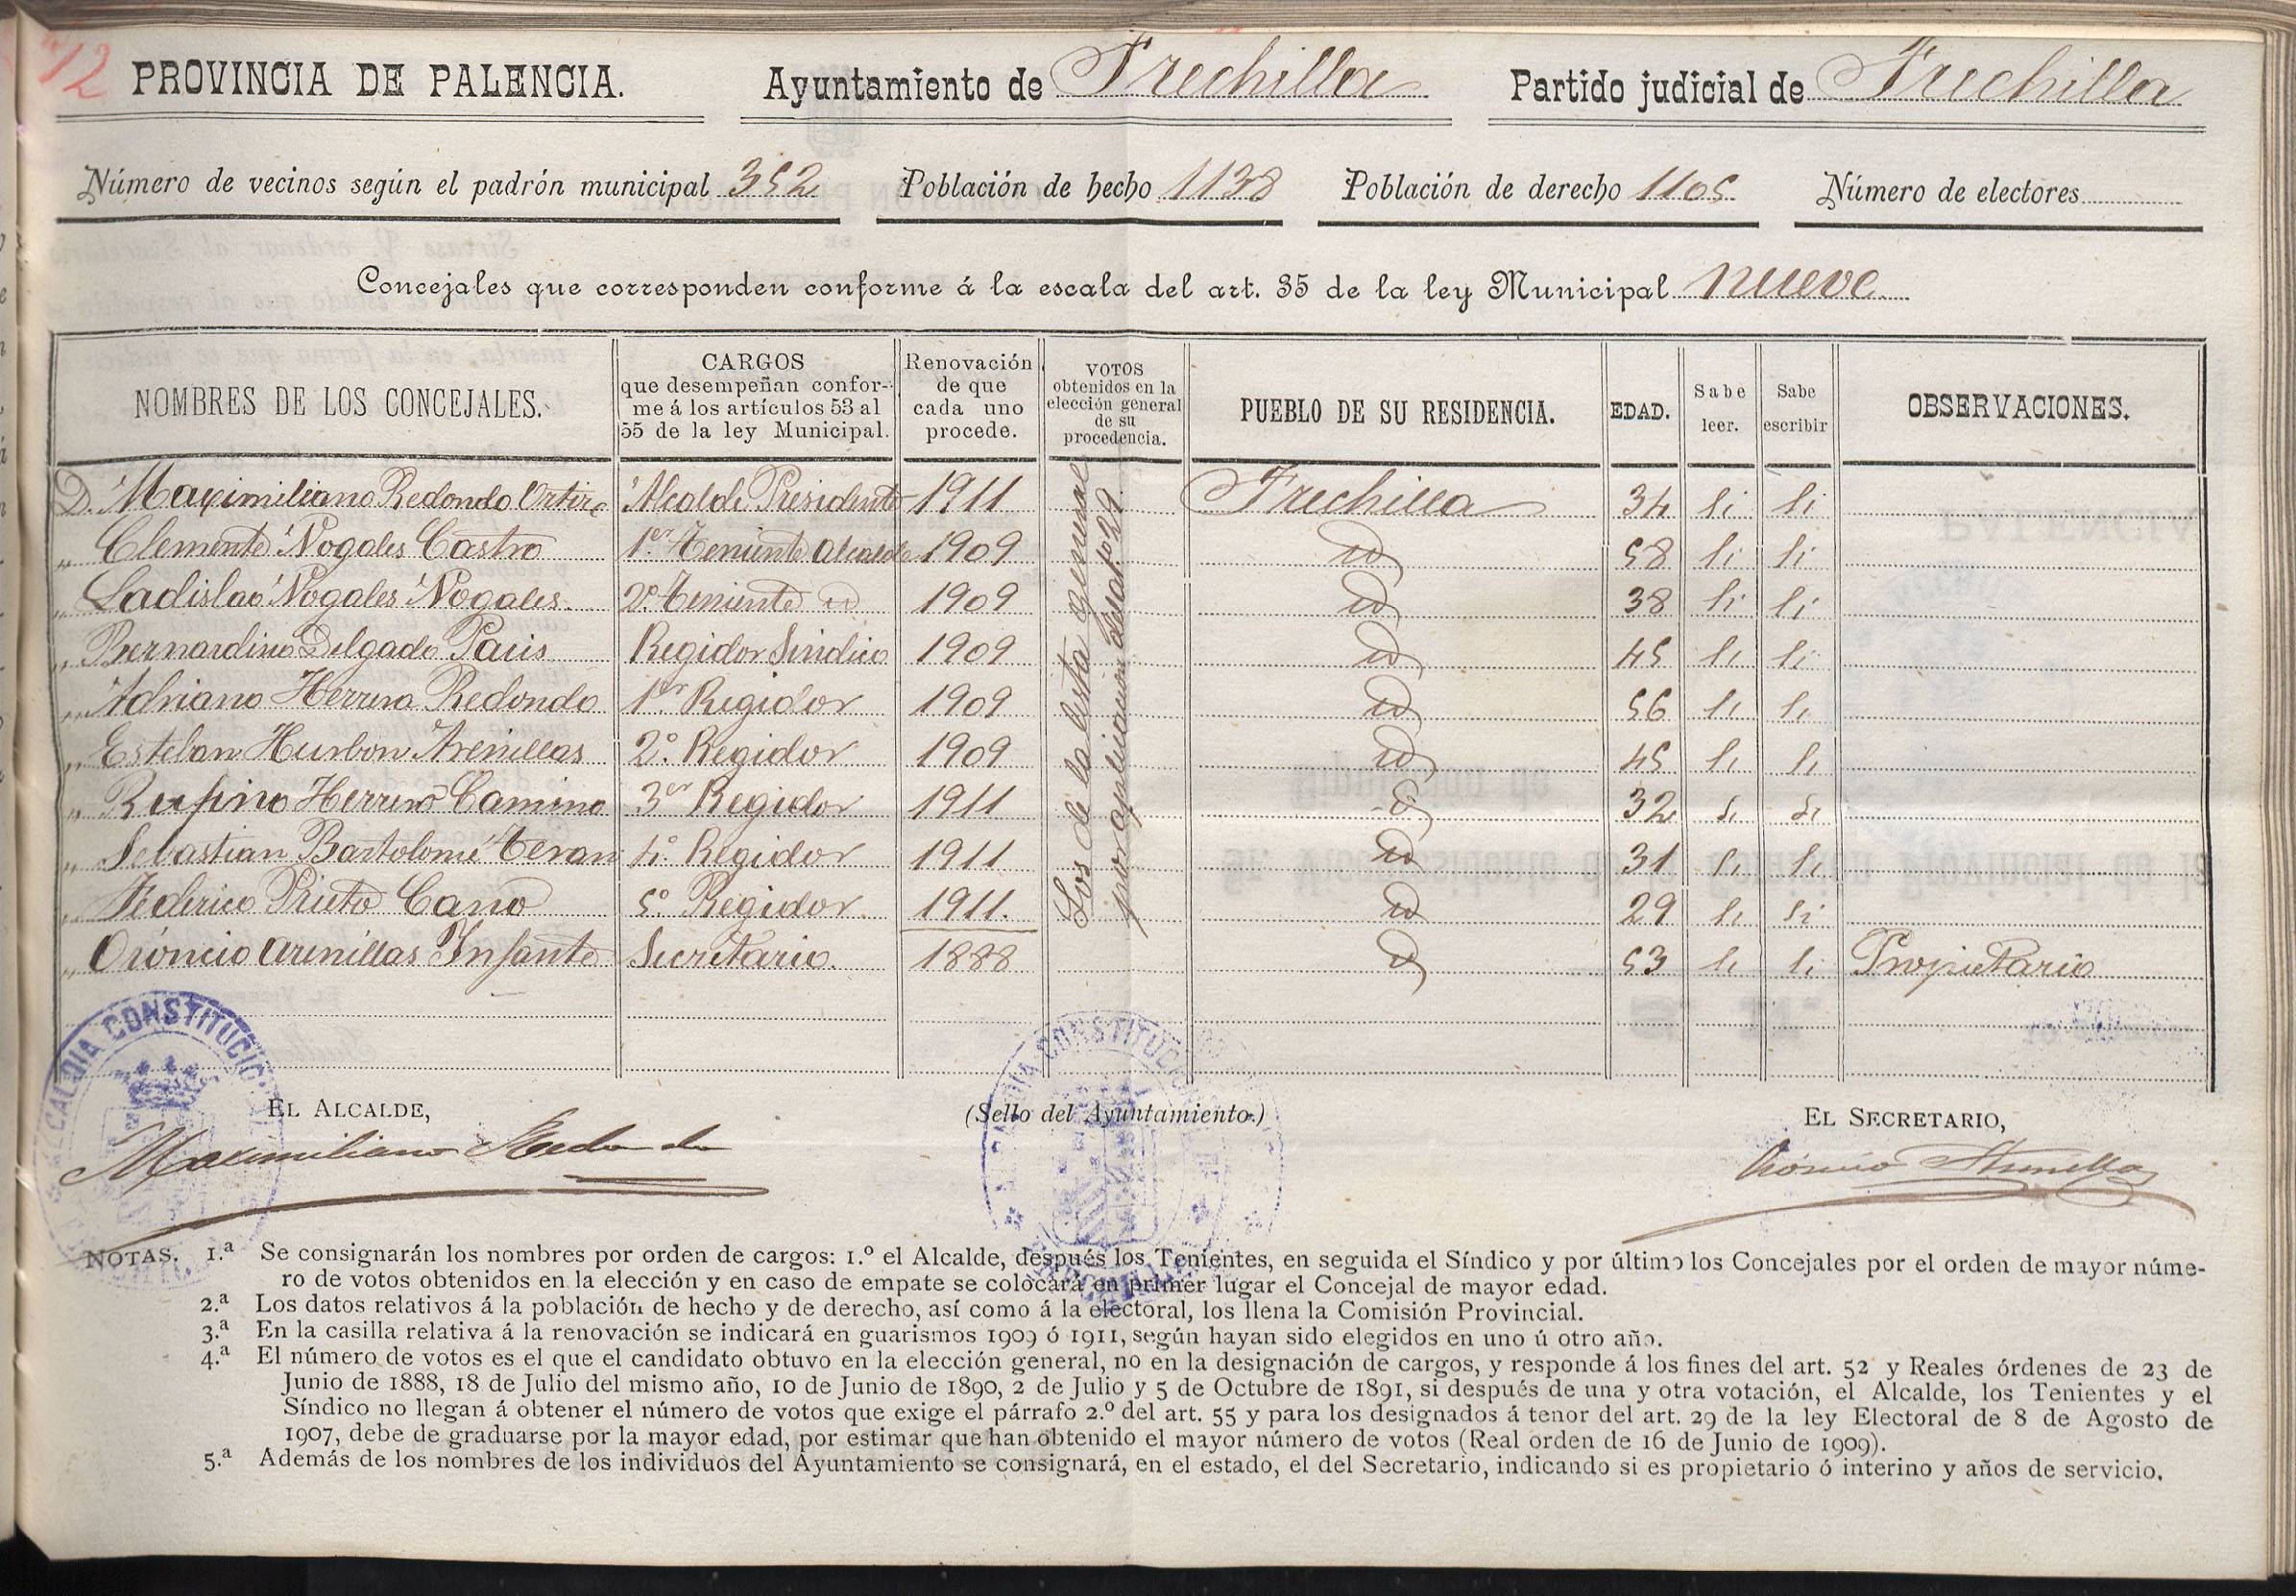 12
PROVINCIA DE PALENCIA. Ayuntamiento de Frechilla Partido judicial de Frechilla
Número de vecinos según el padrón municipal 352 Población de hecho 1138 Población de derecho 1105 Número de electores
Concejales que corresponden conforme á la escala del art. 35 de la ley Municipal nueve
NOMBRES DE LOS CONCEJALES. CARGOS que desempeñan conforme á los artículos 53 al 55 de la ley Municipal. Renovación de que cada uno procede. VOTOS obtenidos en la elección general de su procedencia. PUEBLO DE SU RESIDENCIA. EDAD. Sabe leer. Sabe escribir OBSERVACIONES.
D. Maximiliano Redondo Alcalde Presidente 1911 Frechilla 34 si si
" Clemente Nogales Castro 1er Teniente Alcalde 1909 id 58 si si
" Ladislao Nogales Nogales 2º Teniente id 1909 id 38 si si
" Bernardino Delgado Regidor Sindico 1909 id 45 si si
" Adriano Herrero Redondo 1er Regidor 1909 id 56 si si
" Esteban Hurbon Arenillas 2º Regidor 1909 id 45 si si
" Rufino Herrero Camino 3er Regidor 1911 id 32 si si
" Sebastian Bartolomé Teran 4º Regidor 1911 id 31 si si
" Federico Prieto Cano 5º Regidor 1911. id 29 si si
" Oróncio Arenillas Infante Secretario. 1888 id 53 si si Propietario
Los de la lista general
por aplicacion del artº 29
ALCALDIA CONSTITUCIO
EL ALCALDE, (Sello del Ayuntamiento.) EL SECRETARIO,
Maximiliano Redondo Oróncio Arenillas
ALDIA CONSTITUC
NOTAS. 1.ª Se consignarán los nombres por orden de cargos: 1.º el Alcalde, después los Tenientes, en seguida el Síndico y por último los Concejales por el orden de mayor núme-
ro de votos obtenidos en la elección y en caso de empate se colocará en primer lugar el Concejal de mayor edad.
2.ª Los datos relativos á la población de hecho y de derecho, así como á la electoral, los llena la Comisión Provincial.
3.ª En la casilla relativa á la renovación se indicará en guarismos 1909 ó 1911, según hayan sido elegidos en uno ú otro año.
4.ª El número de votos es el que el candidato obtuvo en la elección general, no en la designación de cargos, y responde á los fines del art. 52 y Reales órdenes de 23 de
Junio de 1888, 18 de Julio del mismo año, 10 de Junio de 1890, 2 de Julio y 5 de Octubre de 1891, si después de una y otra votación, el Alcalde, los Tenientes y el
Síndico no llegan á obtener el número de votos que exige el párrafo 2.º del art. 55 y para los designados á tenor del art. 29 de la ley Electoral de 8 de Agosto de
1907, debe de graduarse por la mayor edad, por estimar que han obtenido el mayor número de votos (Real orden de 16 de Junio de 1909).
5.ª Además de los nombres de los individuos del Ayuntamiento se consignará, en el estado, el del Secretario, indicando si es propietario ó interino y años de servicio.